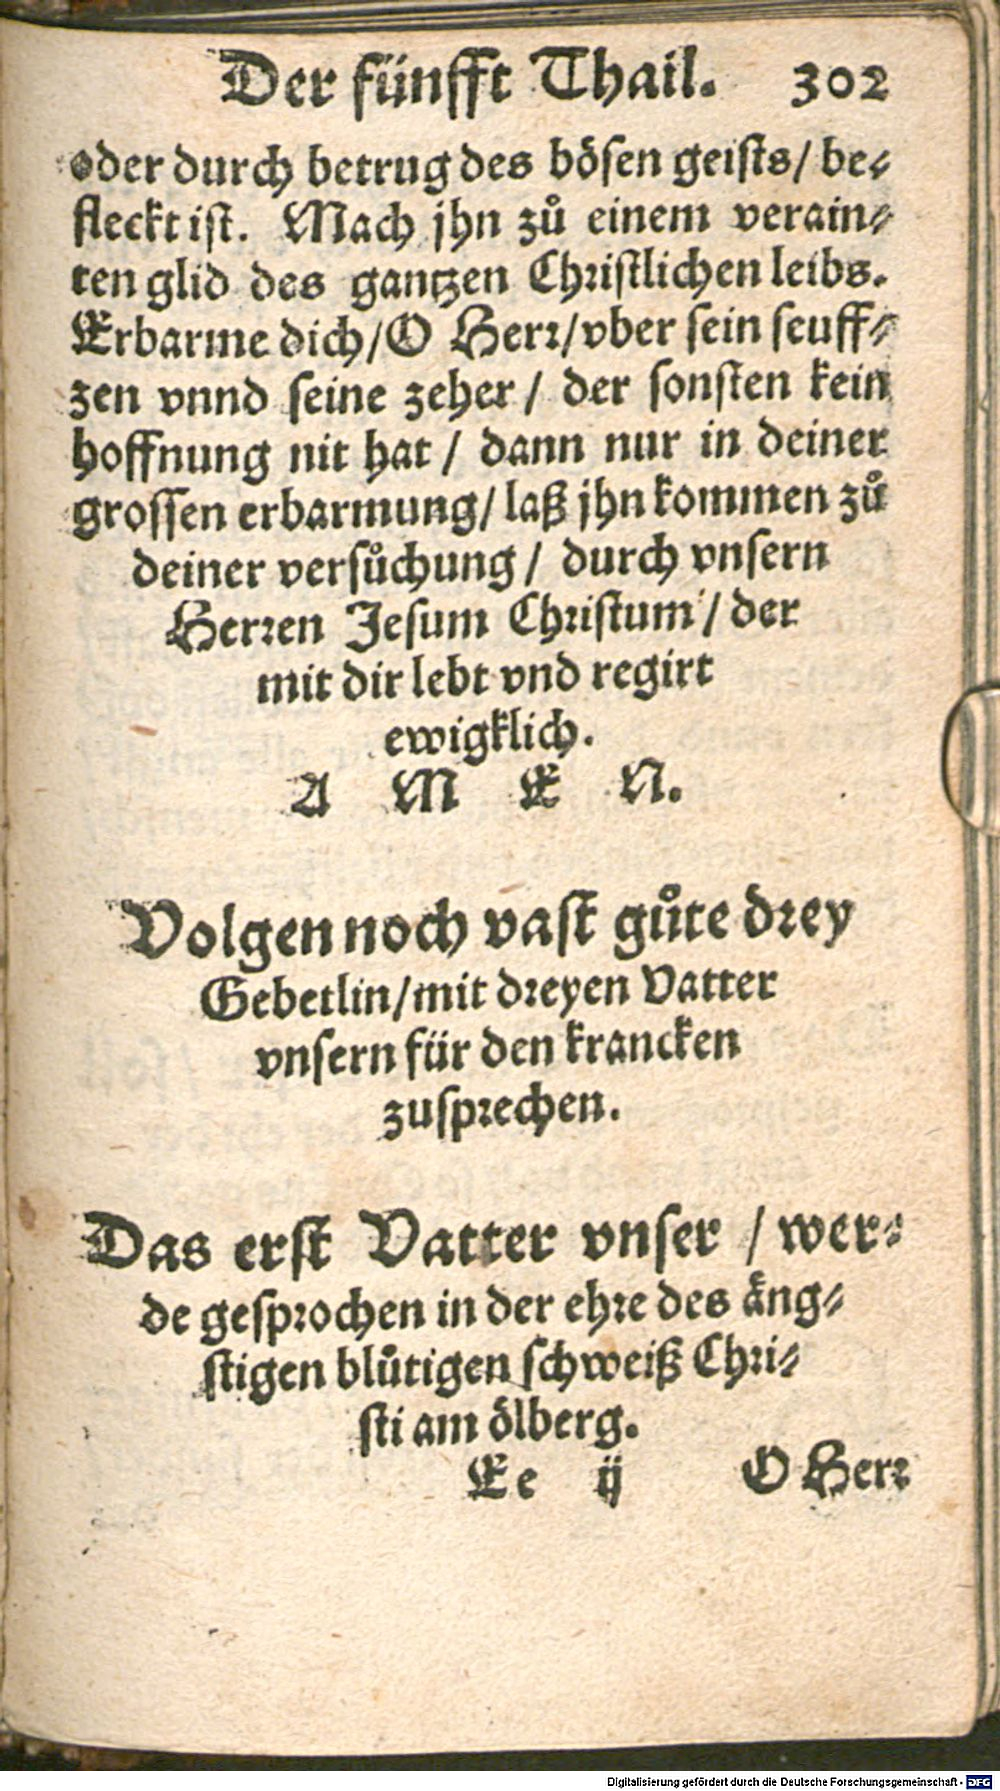 Der fünfft Thail. 302
oder durch betrug des bösen geists/ be⸗
fleckt ist. Mach jhn zů einem verain⸗
ten glid des gantzen Christlichen leibs.
Erbarme dich/ O Herr/ vber sein seuff⸗
zen vnnd seine zeher/ der sonsten kein
hoffnung nit hat/ dann nur in deiner
grossen erbarmung/ laß jhn kommen zů
deiner versůchung/ durch vnsern
Herren Jesum Christum/ der
mit dir lebt vnd regirt
ewigklich.
A M E N.
Volgen noch vast gůte drey
Gebetlin/ mit dreyen Vatter
vnsern für den krancken
zusprechen.
Das erst Vatter vnser/ wer⸗
de gesprochen in der ehre des äng⸗
stigen blůtigen schweiß Chri⸗
sti am ölberg.
Ee ij O Herr
Digitalisierung gefördert durch die Deutsche Forschungsgemeinschaft - DFG